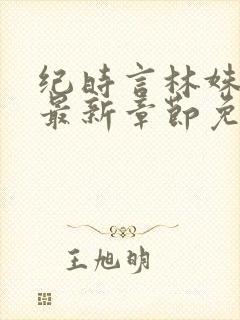 纪时言林妹
最新章节免
王旭明